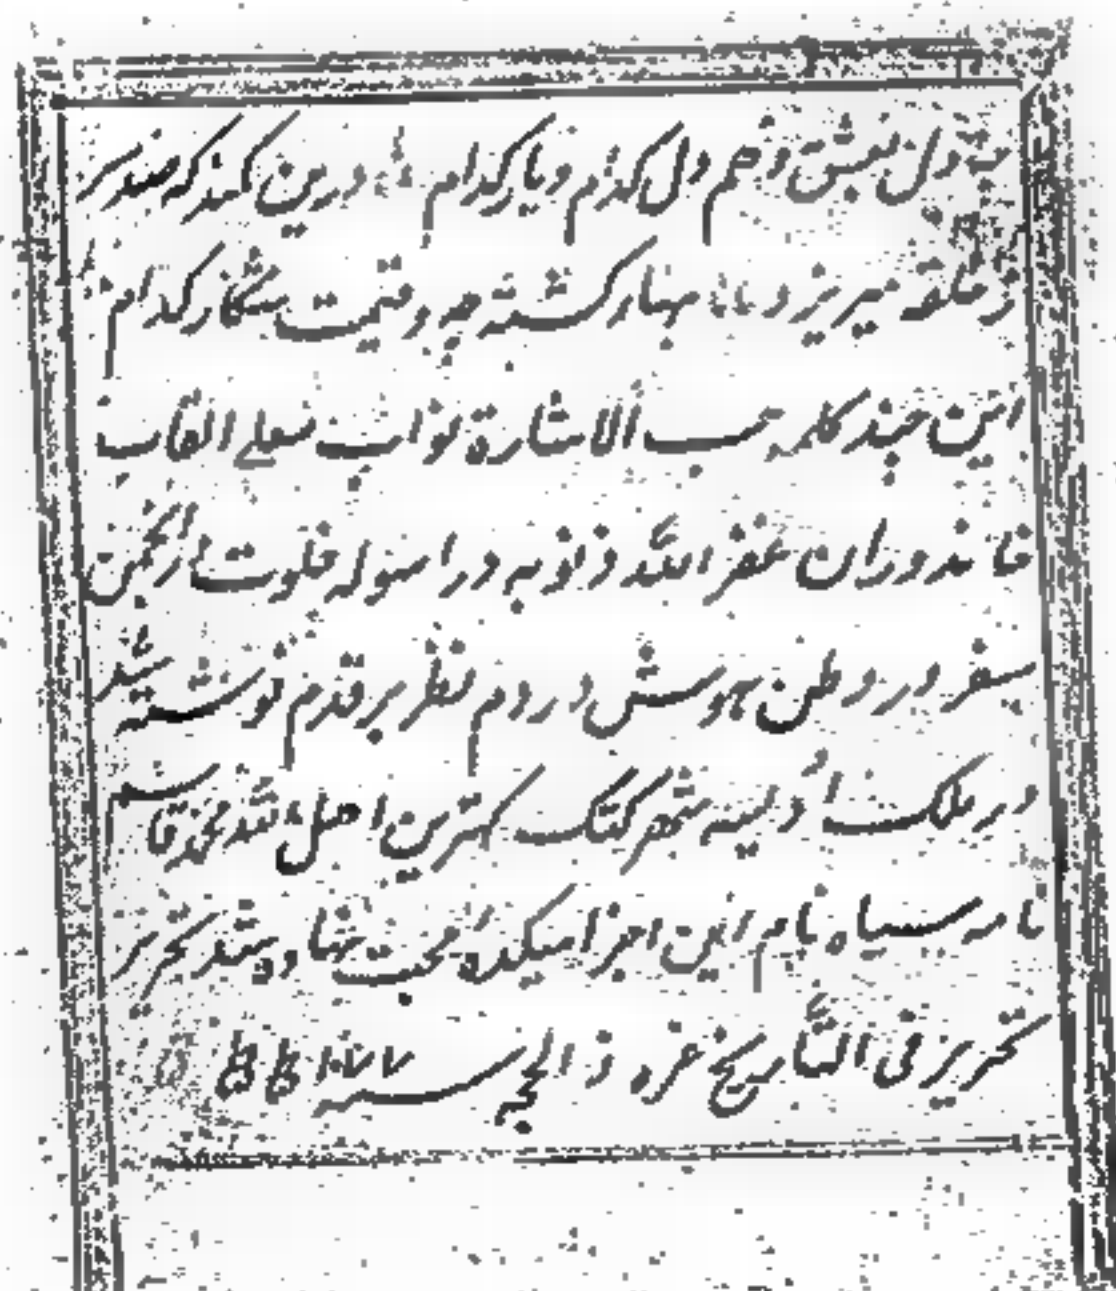 دل بعشق دهم دل کدام و یار کدام درین کمند که صد سر
ز حلقه میریزد بهار کشته چه و قیمت شکار کدام
این چند کلمه حسب الاشارة نواب معلی القاب
خاندوران غفر الله ذنوبه در اصول خلوت در انجمن
سفر در وطن هوش در دم نظر بر قدم نوشته شد
در ملک اودیسه شهر کتک کمترین اهل الله محمد قاسم
نامه سیاه نام این اجزا میکده محبت نهاد شد تحریر
تحریر فی التاریخ غره ذالحجه سنه ۱۰۷۷